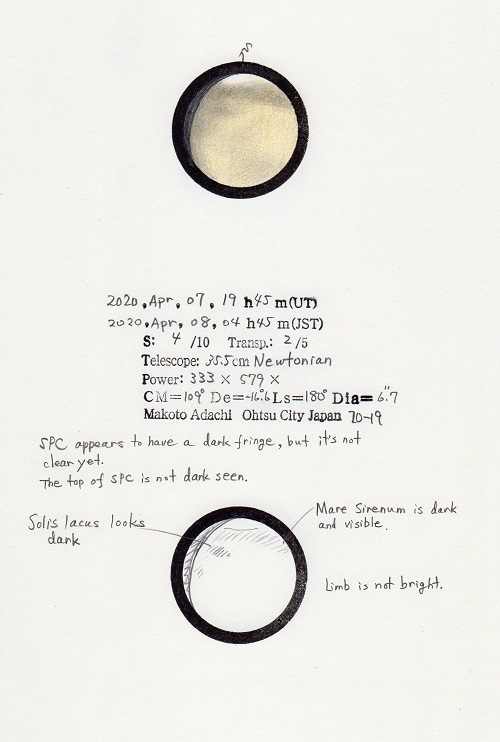 2020, Apr, 07, 19 h45 m(UT)
2020, Apr, 08, 04 h45 m(JST)
S: 4 /10 Transp.: 2 /5
Telescope: 35.5cm Newtonian
Power: 333 × 579 ×
CM=109° De=-16.°6 Ls=180° Dia= 6."7
Makoto Adachi Ohtsu City Japan 70-19
SPC appears to have a dark fringe, but it's not
clear yet.
The top of SPC is not dark seen.
Solis lacus looks
dark
Mare Sirenum is dark
and visible.
Limb is not bright.